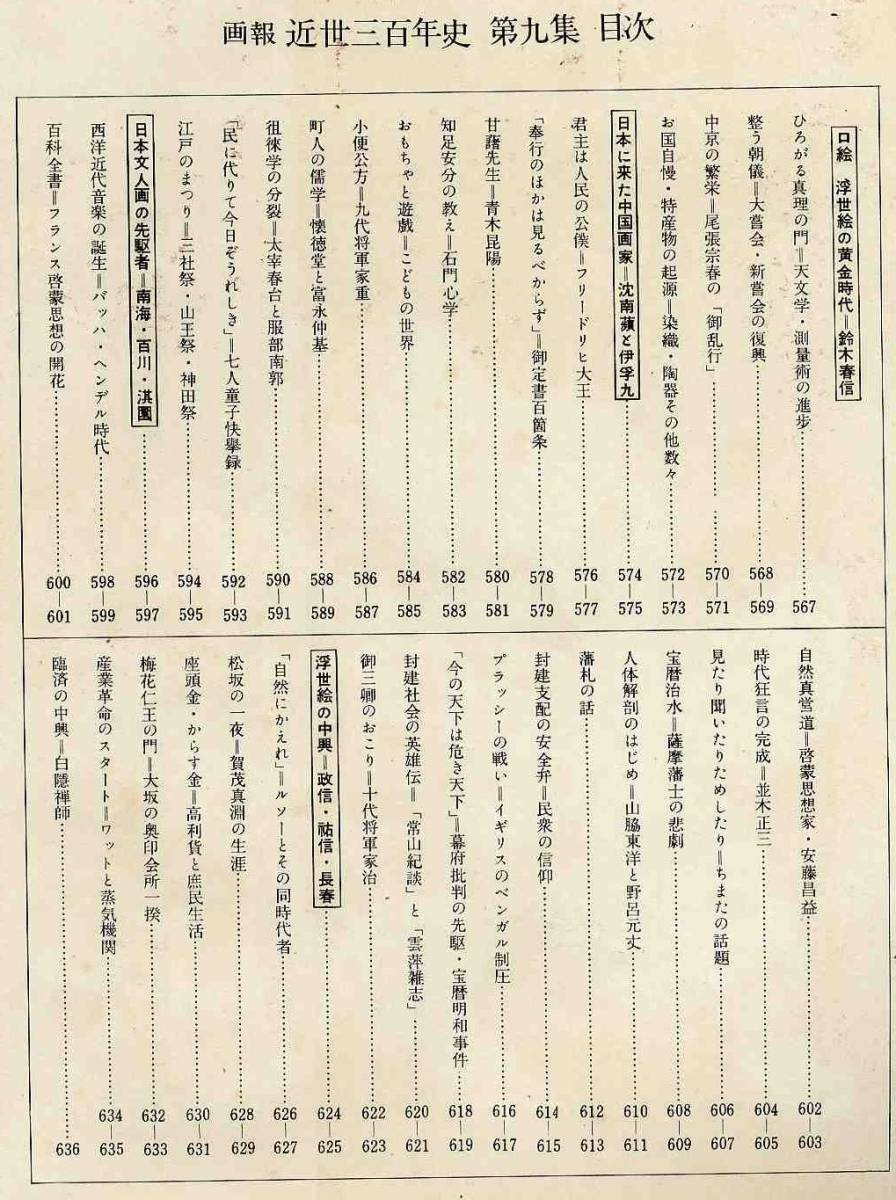 画報 近世三百年史 第九集 目次
口絵 浮世絵の黄金時代＝鈴木春信
ひろがる真理の門＝天文学・測量術の進歩…………567
整う朝儀＝大嘗会・新嘗会の復興…………568—569
中京の繁栄＝尾張宗春の「御乱行」…………570—571
お国自慢・特産物の起源＝染織・陶器その他数々…………572—573
日本に来た中国画家＝沈南蘋と伊孚九…………574—575
君主は人民の公僕＝フリードリヒ大王…………576—577
「奉行のほかは見るべからず」＝御定書百箇条…………578—579
甘藷先生＝青木昆陽…………580—581
知足安分の教え＝石門心学…………582—583
おもちゃと遊戯＝こどもの世界…………584—585
小便公方＝九代将軍家重…………586—587
町人の儒学＝懐徳堂と富永仲基…………588—589
徂徠学の分裂＝太宰春台と服部南郭…………590—591
「民に代りて今日ぞうれしき」＝七人童子快挙録…………592—593
江戸のまつり＝三社祭・山王祭・神田祭…………594—595
日本文人画の先駆者＝南海・百川・淇園…………596—597
西洋近代音楽の誕生＝バッハ・ヘンデル時代…………598—599
百科全書＝フランス啓蒙思想の開花…………600—601
自然真営道＝啓蒙思想家・安藤昌益…………602—603
時代狂言の完成＝並木正三…………604—605
見たり聞いたりためしたり＝ちまたの話題…………606—607
宝暦治水＝薩摩藩士の悲劇…………608—609
人体解剖のはじめ＝山脇東洋と野呂元丈…………610—611
藩札の話…………612—613
封建支配の安全弁＝民衆の信仰…………614—615
プラッシーの戦い＝イギリスのベンガル制圧…………616—617
「今の天下は危き天下」＝幕府批判の先駆・宝暦明和事件…………618—619
封建社会の英雄伝＝「常山紀談」と「雲萍雑志」…………620—621
御三卿のおこり＝十代将軍家治…………622—623
浮世絵の中興＝政信・祐信・長春…………624—625
「自然にかえれ」＝ルソーとその同時代者…………626—627
松坂の一夜＝賀茂真淵の生涯…………628—629
座頭金・からす金＝高利貨と庶民生活…………630—631
梅花仁王の門＝大坂の奥印会所一揆…………632—633
産業革命のスタート＝ワットと蒸気機関…………634—635
臨済の中興＝白隠禅師…………636